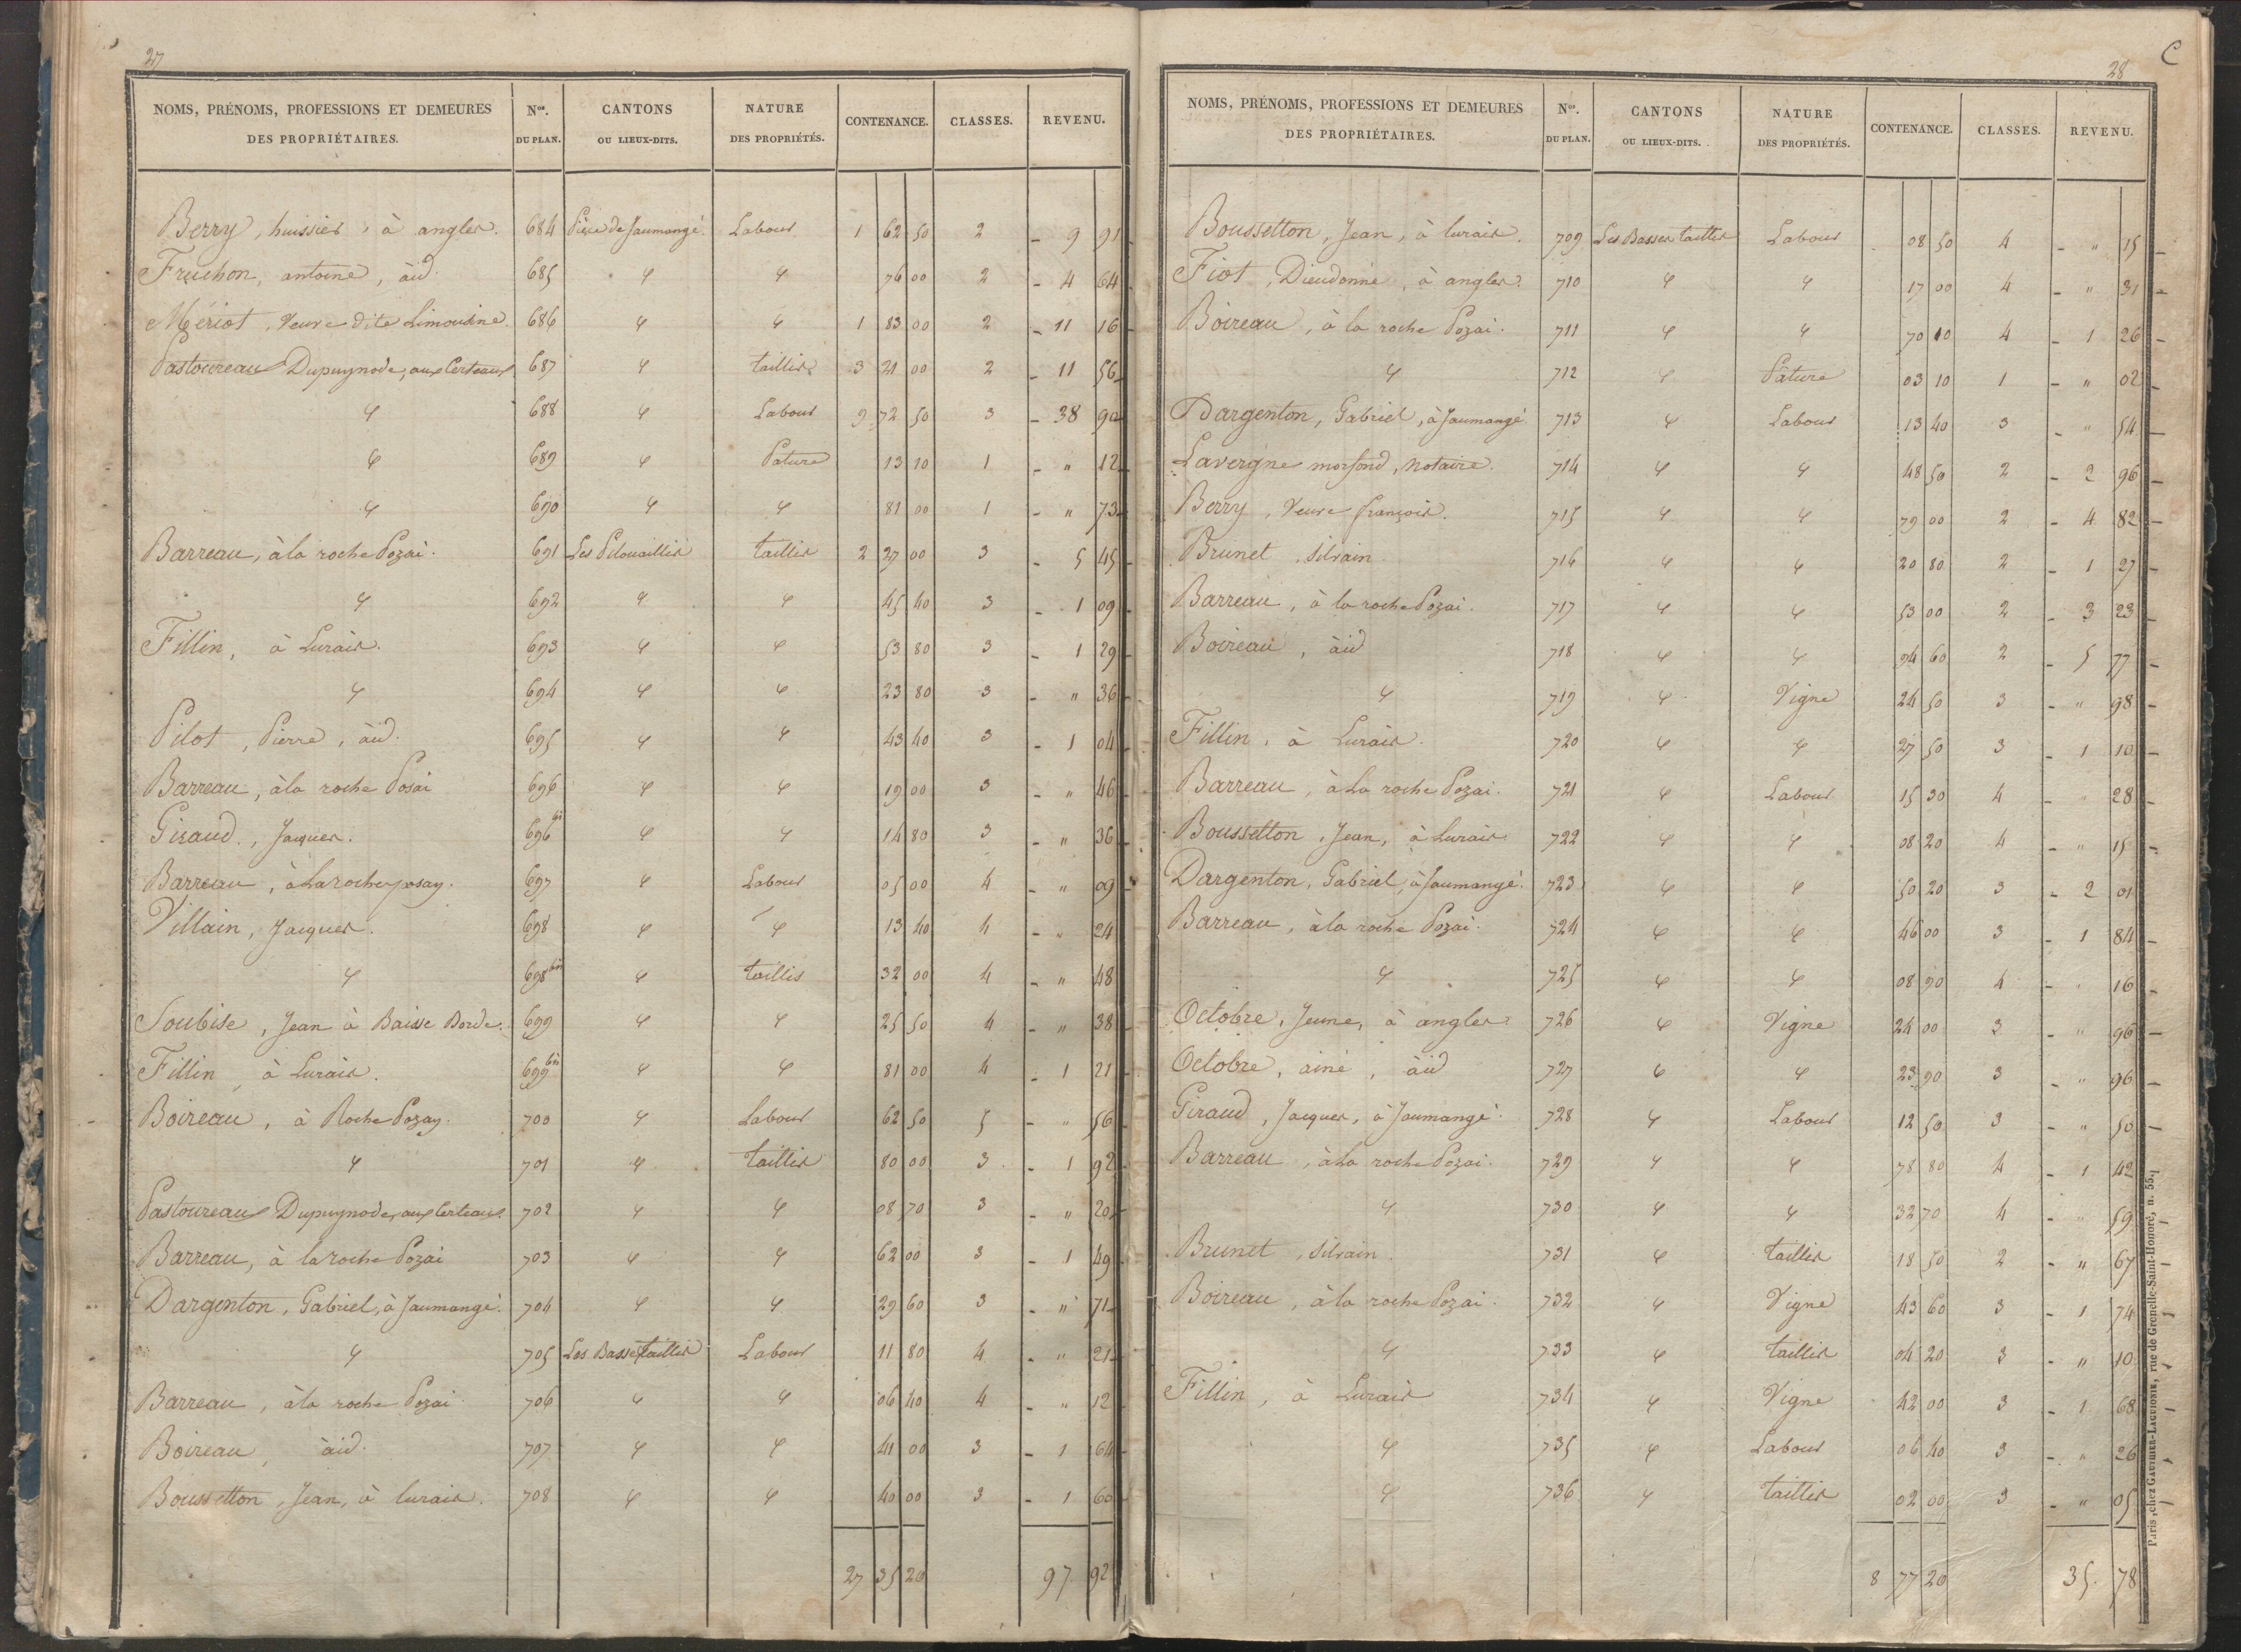 27
NOMS, PRÉNOMS, PROFESSIONS ET DEMEURES DES PROPRIÉTAIRES. Nos. DU PLAN. CANTONS OU LIEUX-DITS. NATURE DES PROPRIÉTÉS. CONTENANCE. CLASSES. REVENU.
Berry, huissier, à angles. 684 Pièce de Jaumangé. Labour 1 62 50 2 - 9 91
Fruchon, antoine, àid. 685 " " 76 00 2 - 4 64
Mériot, Veuve dite Limousine. 686 " " 1 83 00 2 - 11 16
Pastoureau Dupuynode, aux Certeaux 687 " taillis 3 21 00 2 - 11 56
" 688 " Labour 9 72 50 3 - 38 90
" 689 " Pature 13 10 1 - " 12
" 690 " " 81 00 1 - " 73
Barreau, à la roche Pozai. 691 Les Pilouaillis taillis 2 27 00 3 - 5 45
" 692 " " 45 40 3 - 1 09
Fillin, à Lurais. 693 " " 53 80 3 - 1 29
" 694 " " 23 80 3 - " 36
Pilot, Pierre, àid. 695 " " 43 40 3 - 1 04
Barreau, àla roche Posai 696 " " 19 00 3 - " 46
Giraud, Jacques. 696 bis " " 14 80 3 - " 36
Barreau, à Larocheposay. 697 " Labour 05 00 4 - " 09
Villain, Jacques. 698 " " 13 40 4 - " 24
" 698 bis " taillis 32 00 4 - " 48
Soubise, Jean à Baisse Borde. 699 " " 25 50 4 - " 38
Fillin, à Lurais. 699 bis " " 81 00 4 - 1 21
Boireau, à Roche Pozay. 700 " Labour 62 50 5 - " 56
" 701 " taillis 80 00 3 - 1 92
Pastoureau Dupuynode, aux Certeaux. 702 " " 08 70 3 - " 20
Barreau, à la roche Pozai 703 " " 62 00 3 - 1 49
Dargenton, Gabriel, à Jaumangé. 704 " " 29 60 3 - " 71
" 705 Les Basses taillis Labour 11 80 4 - " 21
Barreau, àla roche Pozai 706 " " 06 40 4 - " 12
Boireau, àid. 707 " " 41 00 3 - 1 64
Boussetton, Jean, à lurais. 708 " " 40 00 3 - 1 60
27 35 20 97 92
C
28
NOMS, PRÉNOMS, PROFESSIONS ET DEMEURES DES PROPRIÉTAIRES. Nos. DU PLAN. CANTONS OU LIEUX-DITS. NATURE DES PROPRIÉTÉS. CONTENANCE. CLASSES. REVENU.
Boussetton, Jean, à lurais. 709 Les Basses taillis Labour 08 50 4 - " 15
Fiot, Dieudonné, à angles. 710 " " 17 00 4 - " 31
Boireau, à la roche Pozai. 711 " " 70 10 4 - 1 26
" 712 " Pature 03 10 1 - " 02
Dargenton, Gabriel, à Jaumangé 713 " Labour 13 40 3 - " 54
Lavergne morfond, notaire. 714 " " 48 50 2 - 2 96
Berry, Veuve françois. 715 " " 79 00 2 - 4 82
Brunet, silvain 716 " " 20 80 2 - 1 27
Barreau, à la roche Pozai. 717 " " 53 00 2 - 3 23
Boireau, àid 718 " " 94 60 2 - 5 77
" 719 " Vigne 24 50 3 - " 98
Fillin, à Lurais. 720 " " 27 50 3 - 1 10
Barreau, à La roche Pozai. 721 " Labour 15 30 4 - " 28
Boussetton, Jean, à Lurais. 722 " " 08 20 4 - " 15
Dargenton, Gabriel, à Jaumangé. 723 " " 50 20 3 - 2 01
Barreau, àla roche Pozai. 724 " " 46 00 3 - 1 84
" 725 " " 08 90 4 - " 16
Octobre, Jeune, à angles 726 " Vigne 24 00 3 - " 96
Octobre, ainé, àid 727 " " 23 90 3 - " 96
Giraud, Jacques, à Jaumangé. 728 " Labour 12 50 3 - " 50
Barreau, àLa roche Pozai. 729 " " 78 80 4 - 1 42
" 730 " " 32 70 4 - " 59
Brunet, silvain. 731 " taillis 18 50 2 - " 67
Boireau, àla roche Pozai. 732 " Vigne 43 60 3 - 1 74
" 733 " taillis 04 20 3 - " 10
Fillin, à Lurais 734 " Vigne 42 00 3 - 1 68
" 735 " Labour 06 40 3 - " 26
" 736 " taillis 02 00 3 - " 05
8 77 20 35 78
Paris, chez GAUTHIER-LAGUIONIE, rue de Grenelle-Saint-Honoré, n. 55.